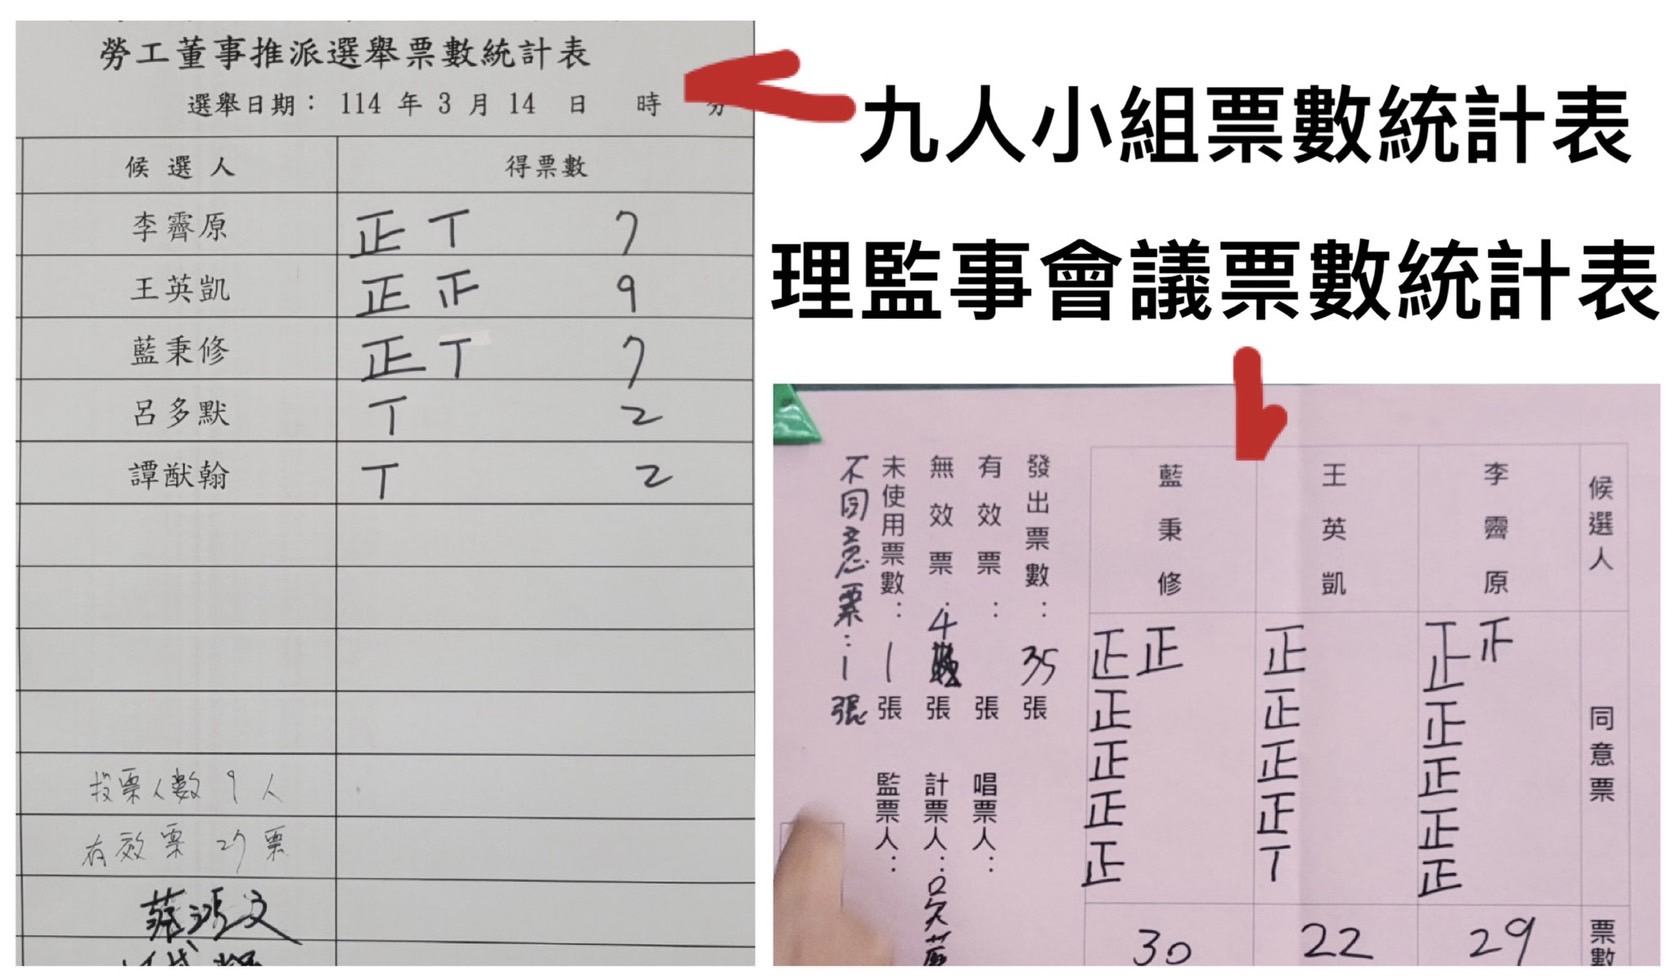 勞工董事推派選舉票數統計表
選舉日期：114 年 3 月 14 日 時 分
候選人 得票數
李霽原 正丅 7
王英凱 正正 9
藍秉修 正丅 7
呂多默 丅 2
譚猷翰 丅 2
投票人數 9 人
有效票 27 票
九人小組票數統計表
理監事會議票數統計表
候選人 同意票 票數
李霽原 正正正正正正 29
王英凱 正正正正丅 22
藍秉修 正正正正正正 30
發出票數：35 張
有效票： 張
無效票：4 張
未使用票數：1 張
不同意票：1 張
唱票人：
計票人：
監票人：